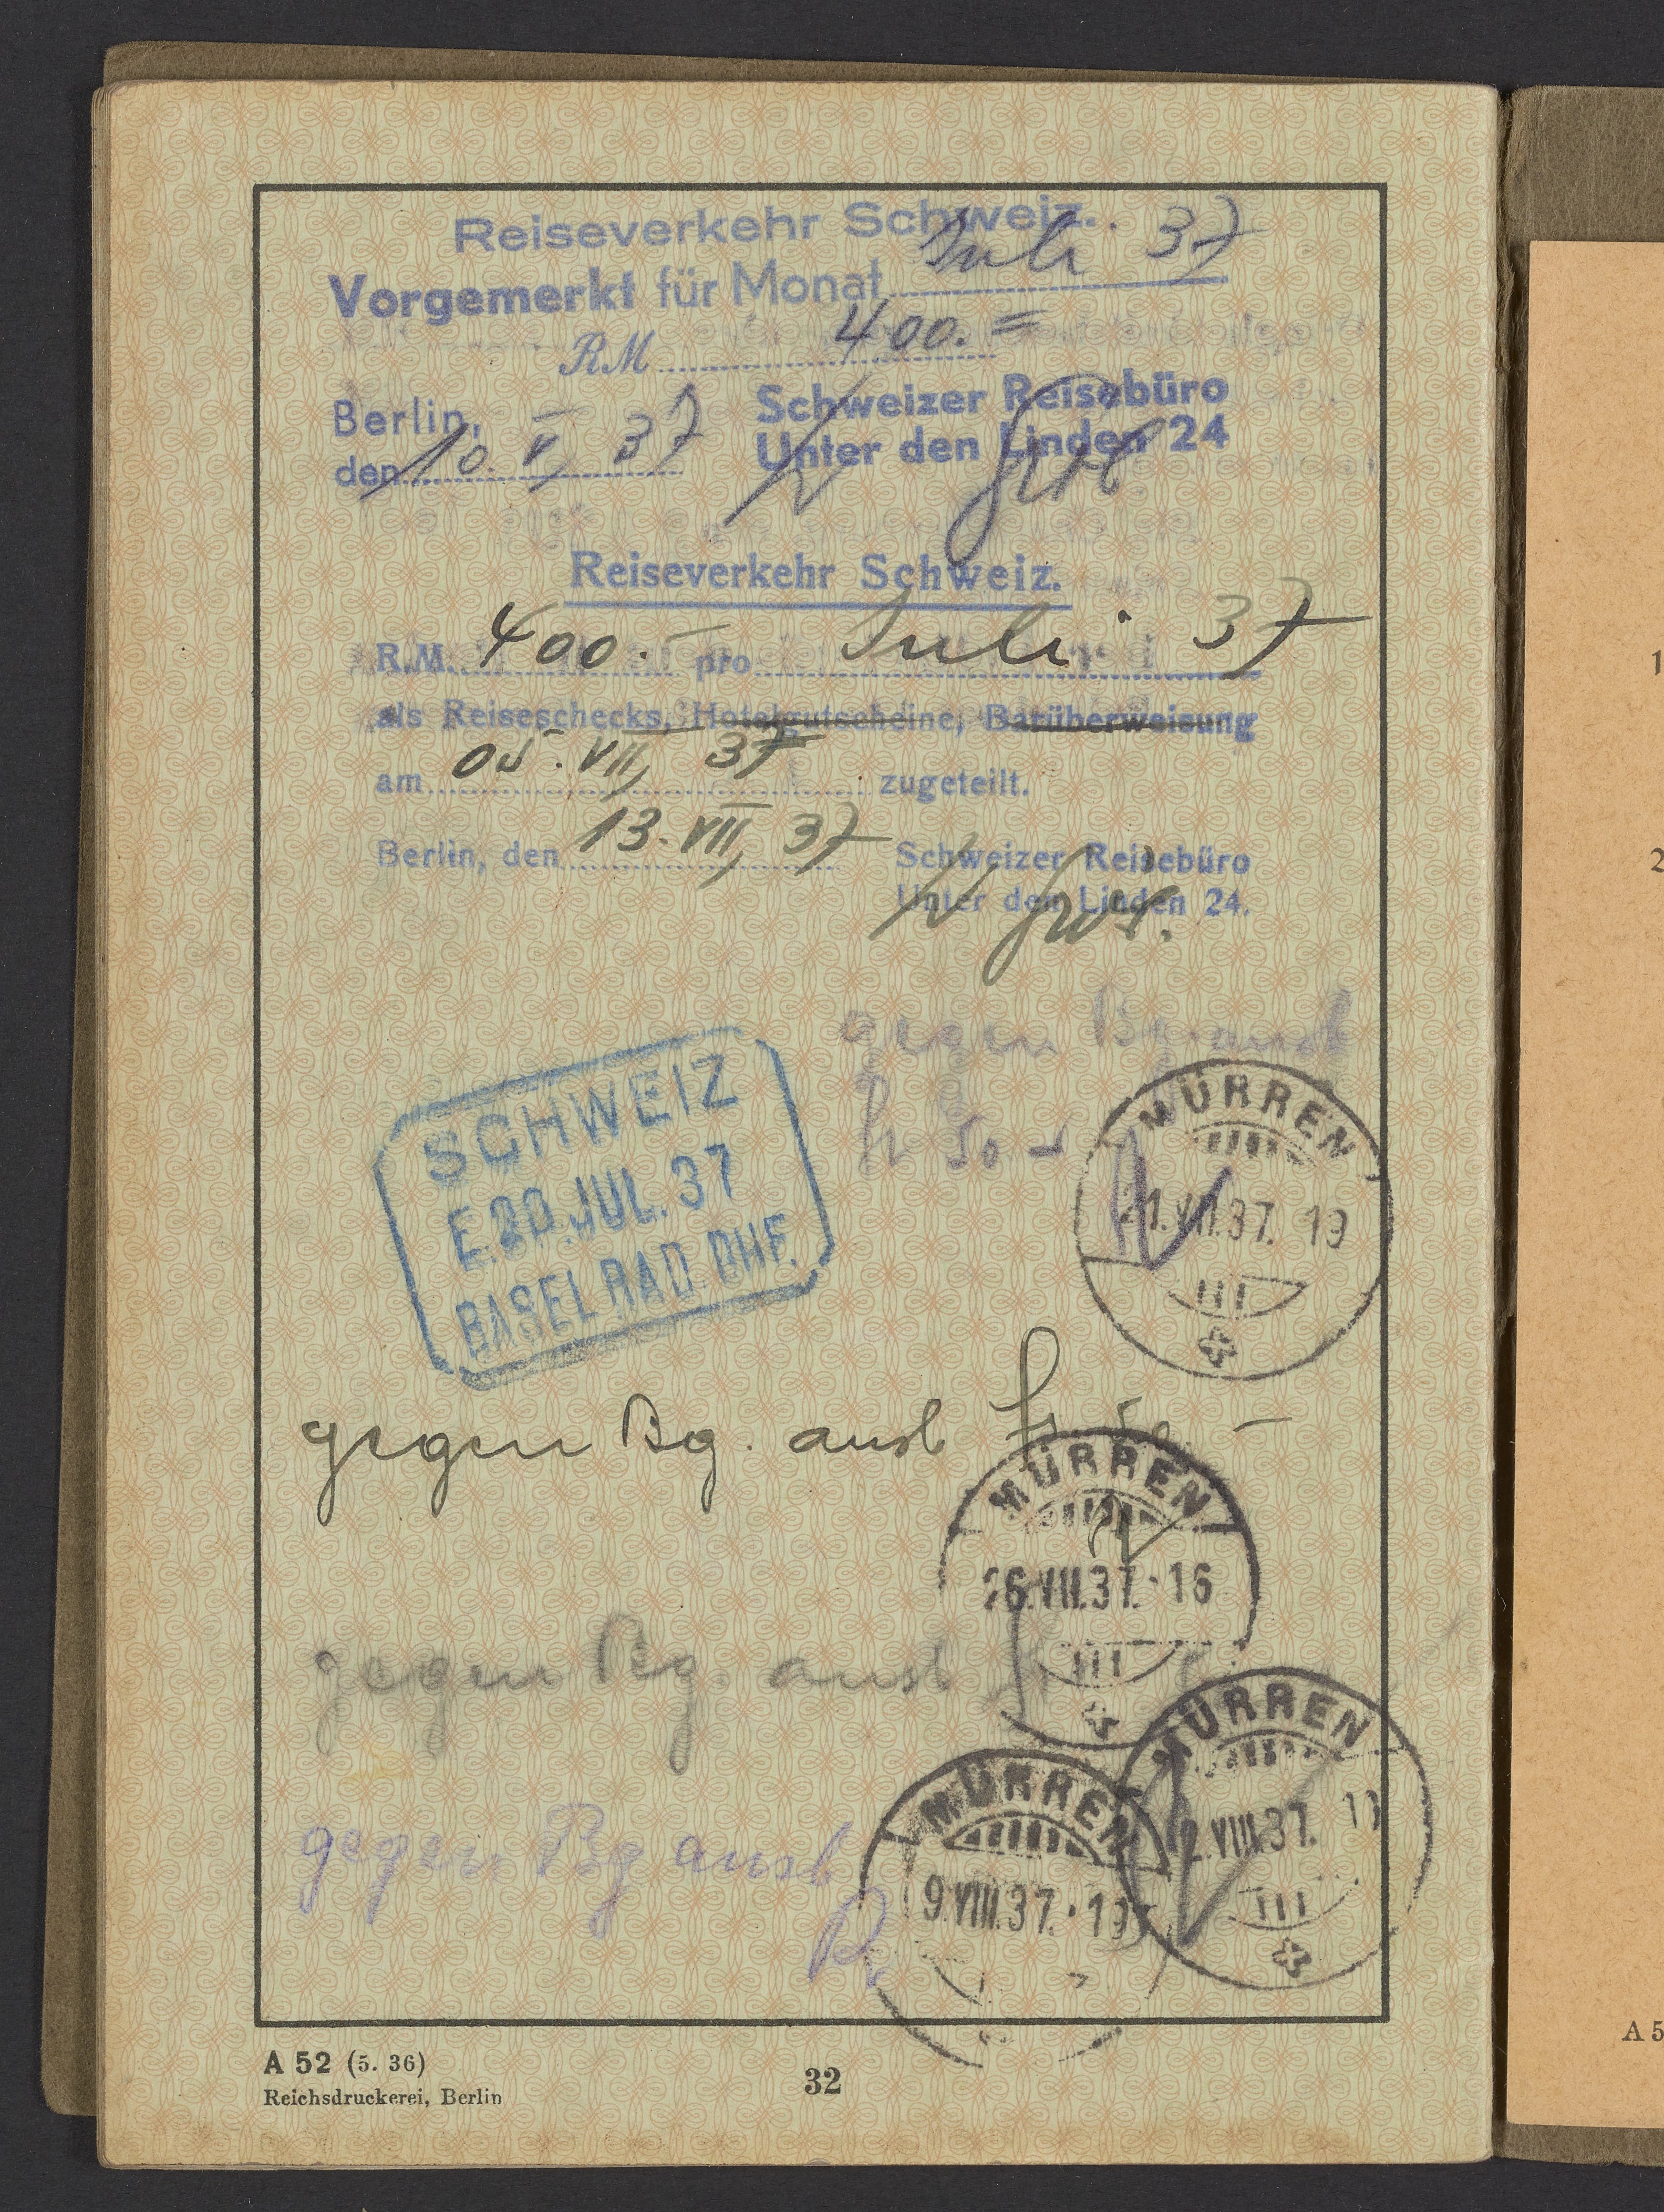 Reiseverkehr Schweiz.
Vorgemerkt für Monat Juli 37
RM 400.=
Berlin, den 10. V. 37
Schweizer Reisebüro
Unter den Linden 24
Reiseverkehr Schweiz.
R.M. 400.- pro Juli 37
als Reiseschecks, Hotelgutscheine, Barüberweisung
am 05. VII, 37 zugeteilt.
Berlin, den 13. VII, 37
Schweizer Reisebüro
Unter den Linden 24.
gegen Bg. ausb
fr 50 -
MÜRREN
21.VII.37. 19
III
SCHWEIZ
E.20.JUL.37
BASEL BAD.BHF.
gegen Bg. ausb fr
MÜRREN
26.VII.37.-16
III
gegen Bg. ausb
MÜRREN
2.VIII.37.
III
gegen Bg ausb
MÜRREN
9.VIII.37.-19
A 52 (5. 36)
Reichsdruckerei, Berlin
32
1
2
A 5